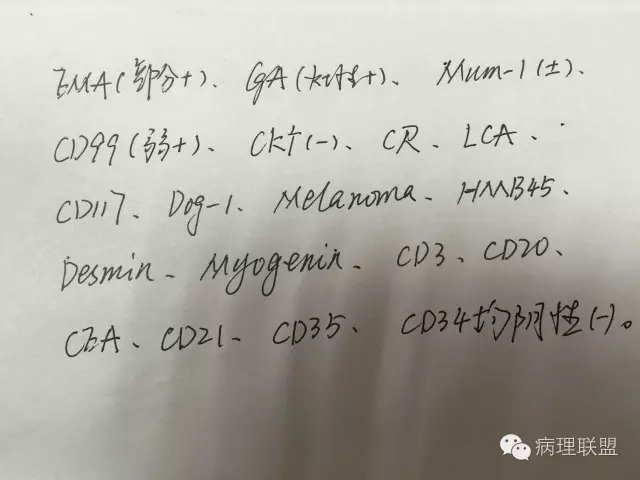 EMA(部分+)、CgA(灶性+)、Mum-1(±)、
CD99(弱+)、CKT(-)、CR、LCA、
CD117、Dog-1、Melanoma、HMB45、
Desmin、Myogenin、CD3、CD20、
CEA、CD21、CD35、CD34均阴性(-)。
病理联盟